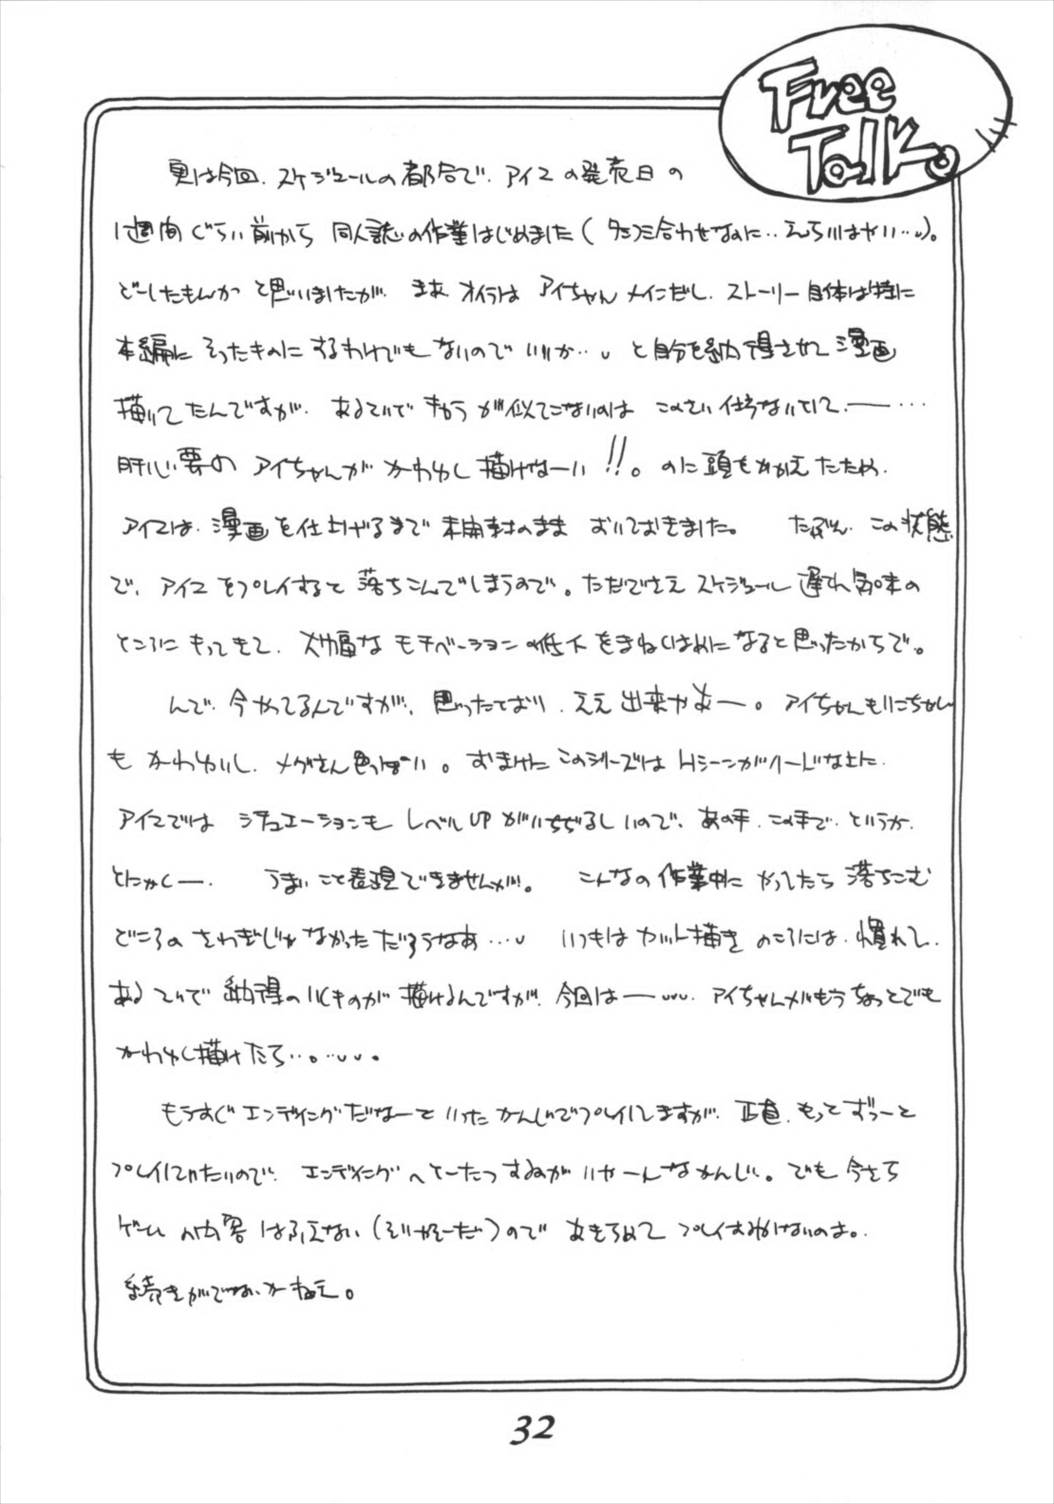 Free
Talk。
実は今回、スケジュールの都合で、アイ2の発売日の
1週間ぐらい前から 同人誌の作業はじめました(
どーしたもんか と思いましたが、まあ オイラは アイちゃん メインだし、ストーリー自体は特に
本編に そったものに するわけでも ないので いいか…と自分を納得させて 漫画
描いて たんですが、あるていど が似てこないのは このさい仕方ないとして、ー…
肝心要の アイちゃんが かわゆく描けなーい!!。のに頭をかかえたため、
アイ2は、漫画を仕上げるまで 未開封のまま おいておきました。 たぶん、この状態
で、アイ2をプレイすると 落ちこんでしまうので。ただでさえ スケジュール 遅れ気味の
ところに もってきて、大幅な モチベーションの低下をまねくはめに なると思ったからで。
んで、今やってるんですが、思ったとおり、ええ出来やあー。アイちゃんも
も かわゆいし、メグさん色っぽい。おまけに このシリーズは Hシーンがハードな上に、
アイ2では シチュエーションも レベルUPがいちぢるしいので、あの手、この手で、というか、
とにかくー、 うまいこと表現できませんが。 こんなの 作業中に やってたら 落ちこむ
どころの さわぎじゃ なかっただろうなあ… いつもは カット描き のころには、慣れて、
あるていど 納得のいくものが 描けるんですが、今回はー… アイちゃんがもうちょっとでも
かわゆく描けたら…。…。
もうすぐ エンディングだなーと いった かんじでプレイしてますが、正直、もっと ずぅーと
プレイしていたいので、エンディングへ とーたつ するのが いやーんな かんじ。でも 今さら
ゲーム 内容 はふえない( )ので あきらめて プレイ
続きがでないかねえ。
32